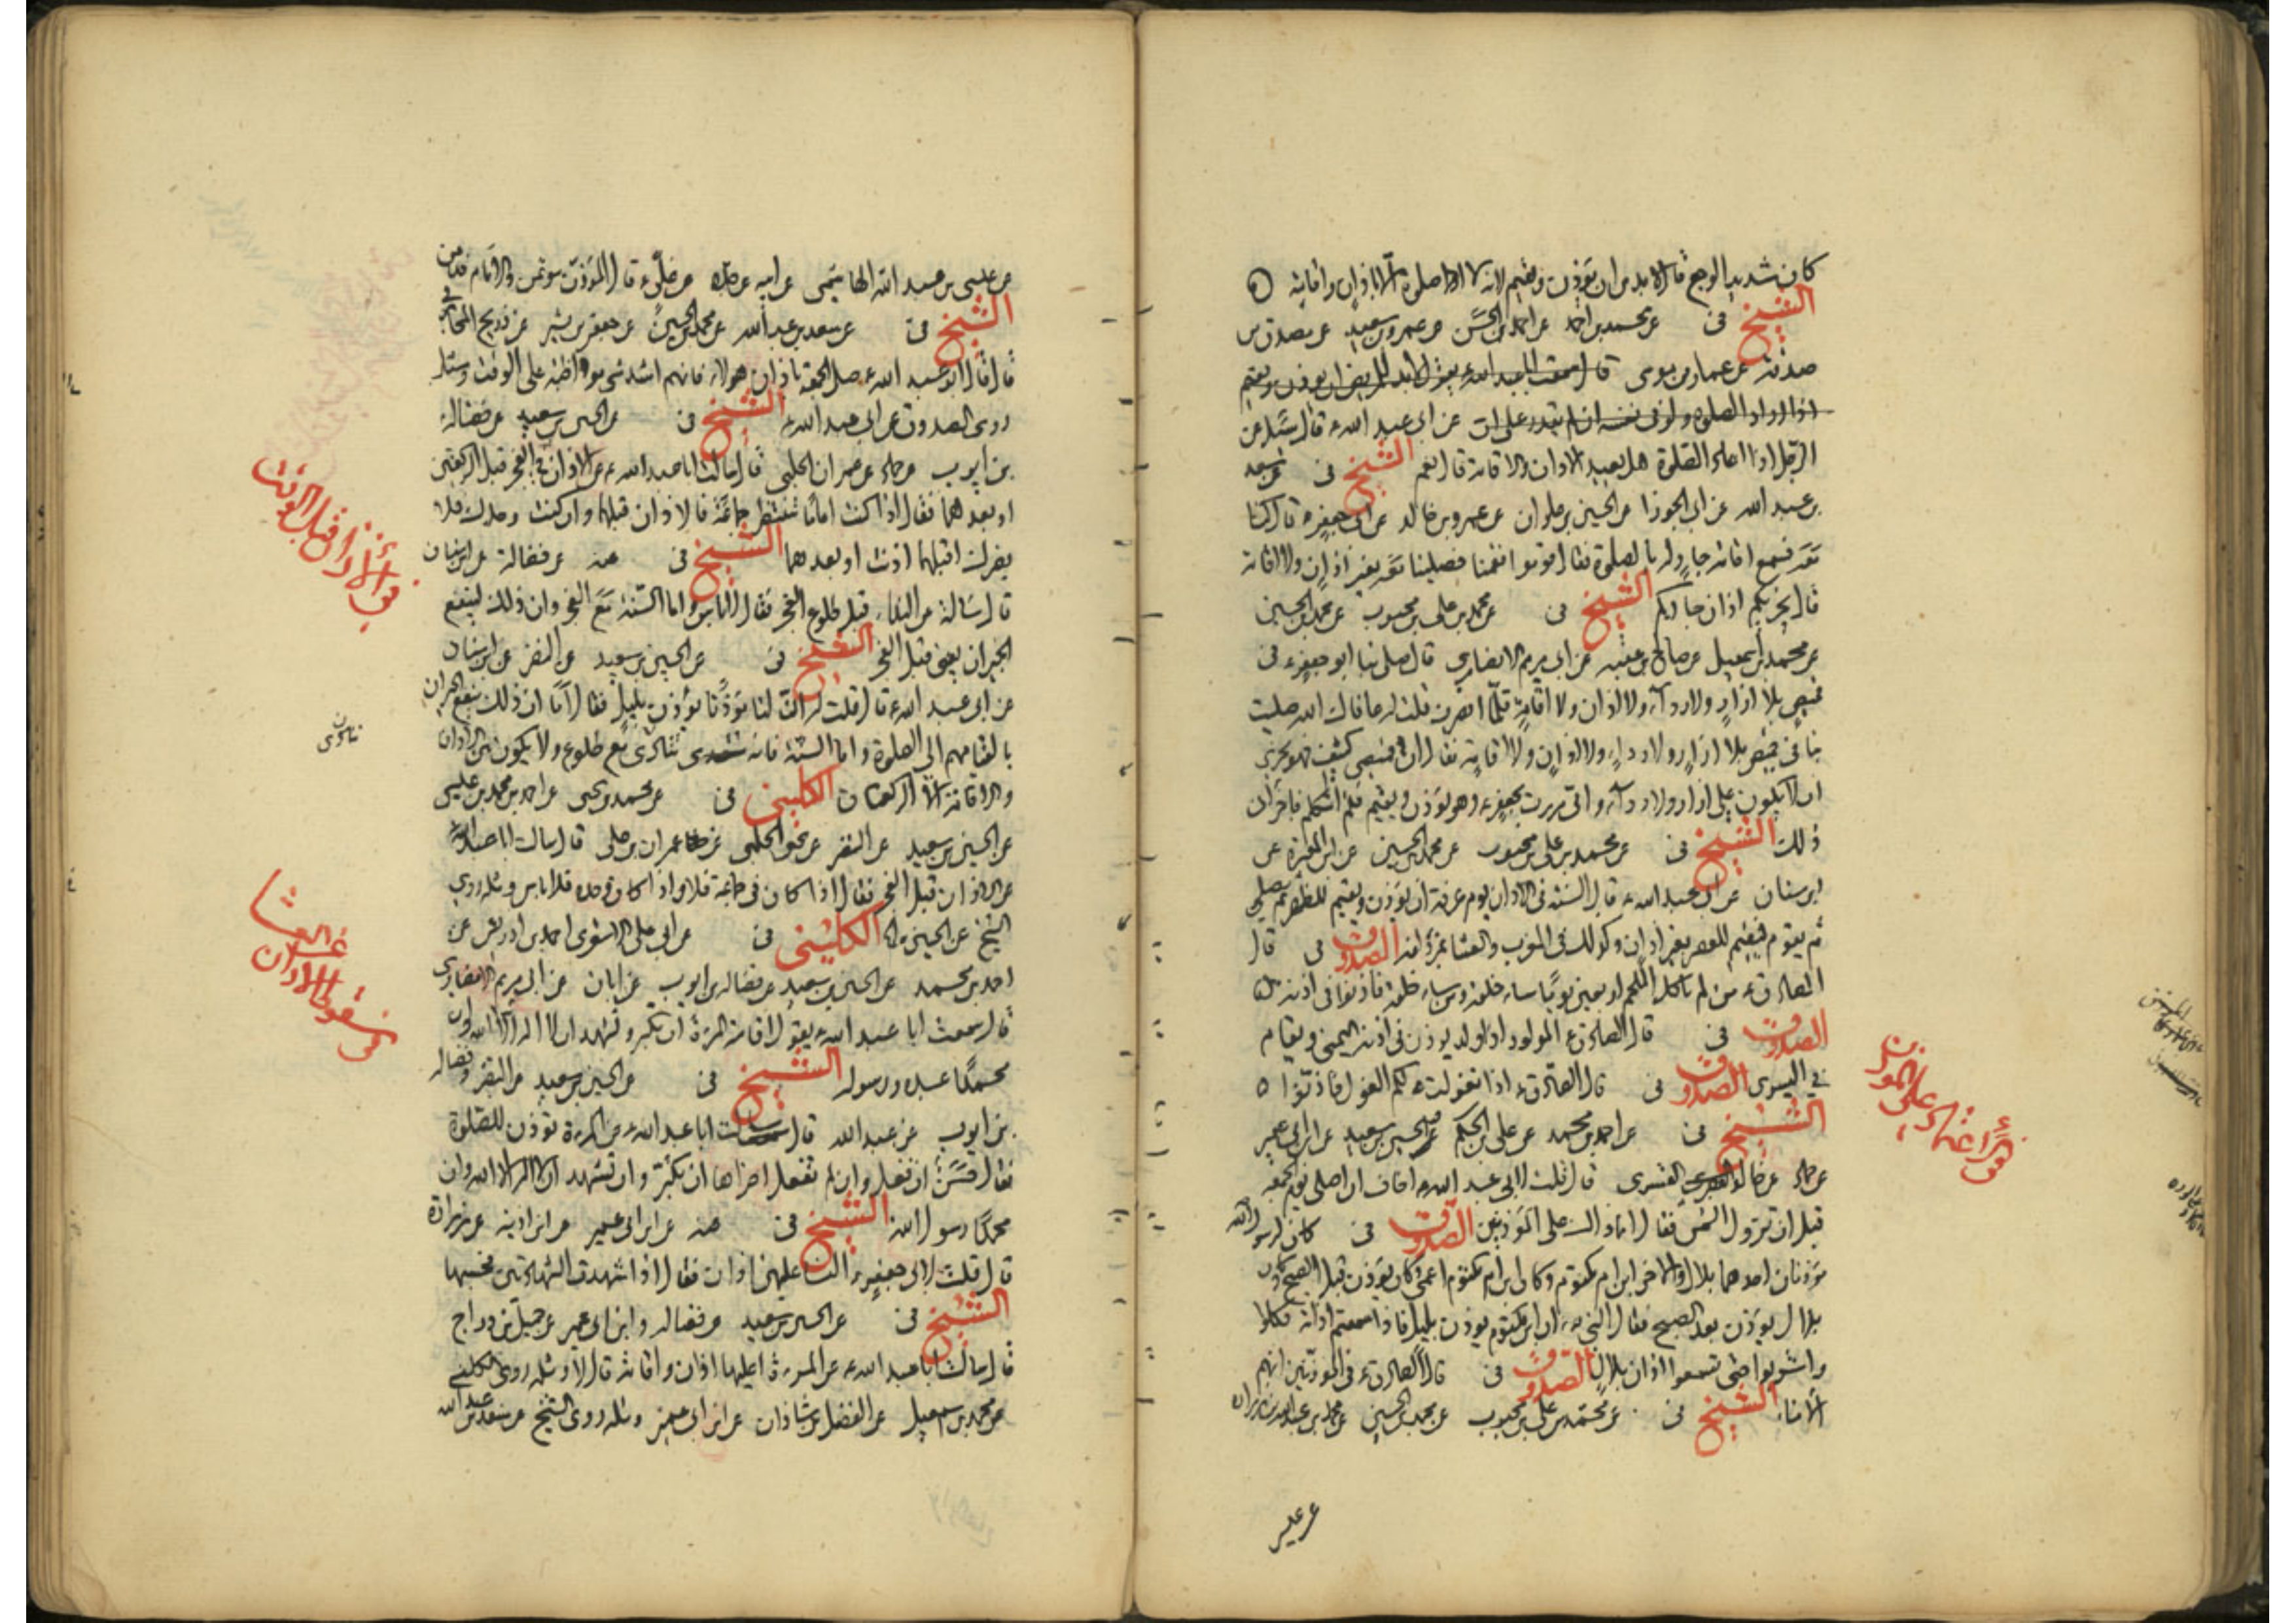 كان شديد الوجع قال لابد من ان يؤذن ويقيم لانه لا صلوة الا باذان واقامة
الشيخ فى عن محمد بن احمد عن احمد بن الحسن عن عمرو بن سعيد عن مصدق بن
صدقة عن عمار بن موسى قال سمعت ابا عبد الله ع يقول لابد للمريض ان يؤذن ويقيم
اذا اراد الصلوة ولو فى نفسه ان لم يقدر على ان عن ابى عبد الله ع قال سئل عن
الرجل اذا اعاد الصلوة هل يعيد الاذان والاقامة قال نعم الشيخ فى عن سعد
بن عبد الله عن ابى الجوزا عن الحسين بن علوان عن عمرو بن خالد عن ابى جعفر ع قال كنا
معه فسمع اقامة جار له بالصلوة فقال قوموا فقمنا فصلينا معه بغير اذان ولا اقامة
قال يجزيكم اذان جاركم الشيخ فى عن محمد بن على بن محبوب عن محمد بن الحسين
عن محمد بن اسمعيل عن صالح بن عقبه عن ابى مريم الانصارى قال صلى بنا ابو جعفر ع فى
قميص بلا ازار ولا ردآء ولا اذان ولا اقامة فلما انصرف قلت له عافاك الله صليت
بنا فى قميص بلا ازار ولا رداء ولا اذان ولا اقامة فقال ان قميصى كثيف فهو يجزى
ان لا يكون على ازار ولا ردآء وانى مررت بجعفر ع وهو يؤذن ويقيم فلم اتكلم فاجزأنى
ذلك الشيخ فى عن محمد بن على بن محبوب عن محمد بن الحسين عن ابن المغيرة عن
ابن سنان عن ابى عبد الله ع قال السنة فى الاذان يوم عرفة ان يؤذن ويقيم للظهر ثم يصلى
ثم يقوم فيقيم للعصر بغير اذان وكذلك فى المغرب والعشا بمزدلفة الصدوق فى قال
الصادق ع من لم ياكل اللحم اربعين يوما ساء خلقه ومن ساء خلقه فاذنوا فى اذنه
الصدوق فى قال الصادق ع المولود اذا ولد يوذن فى اذنه اليمنى ويقام
فى اليسرى الصدوق فى قال الصادق ع اذا تغولت لكم الغول فاذنوا
الشيخ فى عن احمد بن محمد عن على بن الحكم عن الحسين بن سعيد عن ابن ابى عمير
عن حماد عن خالد القسرى قال قلت لابى عبد الله ع اخاف ان اصلى يوم الجمعة
قبل ان تزول الشمس فقال انما ذلك على المؤذنين الصدوق فى كان لرسول الله
مؤذنان احدهما بلال والاخر ابن ام مكتوم وكان ابن ام مكتوم اعمى وكان يؤذن قبل الصبح وكان
بلال يؤذن بعد الصبح فقال النبى ص ان ابن مكتوم يوذن بليل فاذا سمعتم اذانه فكلوا
واشربوا حتى تسمعوا اذان بلال الصدوق فى قال الصادق ع فى المؤذنين انهم
الامناء الشيخ فى عن محمد بن على بن محبوب عن محمد بن الحسين عن محمد بن عبد الله بن زراره
عن عيسى
عن عيسى بن عبد الله الهاشمى عن ابيه عن جده عن على ع قال المؤذن مؤتمن والامام ضامن
الشيخ فى عن سعد بن عبد الله عن محمد بن الحسين عن جعفر بن بشير عن ذريح المحاربى
قال قال لى ابو عبد الله ع صل الجمعة باذان هولاء فانهم اشد شى مواظبة على الوقت ومثله
روى الصدوق عن ابى عبد الله ع الشيخ فى عن الحسين بن سعيد عن فضاله
بن ايوب عن حماد عن عمران الحلبى قال سالت ابا عبد الله ع عن الاذان فى الفجر قبل الركعتين
او بعدهما فقال اذا كنت اماما تنتظر جماعة فالاذان قبلهما وان كنت وحدك فلا
يضرك اقبلهما اذنت او بعدهما الشيخ فى عنه عن فضالة عن ابن سنان
قال سالته عن النداء قبل طلوع الفجر فقال لا باس واما السنة مع الفجر وان ذلك لينفع
الجيران يعنى قبل الفجر الشيخ فى عن الحسين بن سعيد عن النضر عن ابن سنان
عن ابى عبد الله ع قال قلت له ان لنا مؤذنا يؤذن بليل فقال اما ان ذلك ينفع الجيران
لقيامهم الى الصلوة واما السنة فانه ينادى مع طلوع ولا يكون بين الاذان
والاقامة الا الركعتان الكلينى فى عن محمد بن يحيى عن احمد بن محمد بن عيسى
عن الحسين بن سعيد عن النضر عن يحيى الحلبى عن عمران بن على قال سالت ابا عبد الله ع
عن الاذان قبل الفجر فقال اذا كان فى جماعة فلا واذا كان وحده فلا باس ومثله روى
الشيخ عن الحسين الكلينى فى عن ابى على الاشعرى احمد بن ادريس عن
احمد بن محمد عن الحسين بن سعيد عن فضاله بن ايوب عن ابان عن ابى مريم الانصارى
قال سمعت ابا عبد الله ع يقول اقامة المرءة ان تكبر وتشهد ان لا اله الا الله وان
محمدا عبده ورسوله الشيخ فى عن الحسين بن سعيد عن النضر وفضاله
بن ايوب عن عبد الله قال سالت ابا عبد الله ع عن المرءة تؤذن للصلوة
فقال حسن ان فعلت وان لم تفعل اجزاها ان تكبر وان تشهد ان لا اله الا الله وان
محمدا رسول الله الشيخ فى عنه عن ابن ابى عمير عن ابن اذينه عن زرارة
قال قلت لابى جعفر ع النسا عليهن اذان فقال اذا شهدت الشهادتين فحسبها
الشيخ فى عن الحسين بن سعيد عن فضاله وابن ابى عمير عن جميل بن دراج
قال سالت ابا عبد الله ع عن المرءة اعليها اذان واقامة قال لا ومثله روى الكلينى
عن محمد بن اسمعيل عن الفضل بن شاذان عن ابن ابى عمير ومثله روى الشيخ عن سعد بن عبد الله